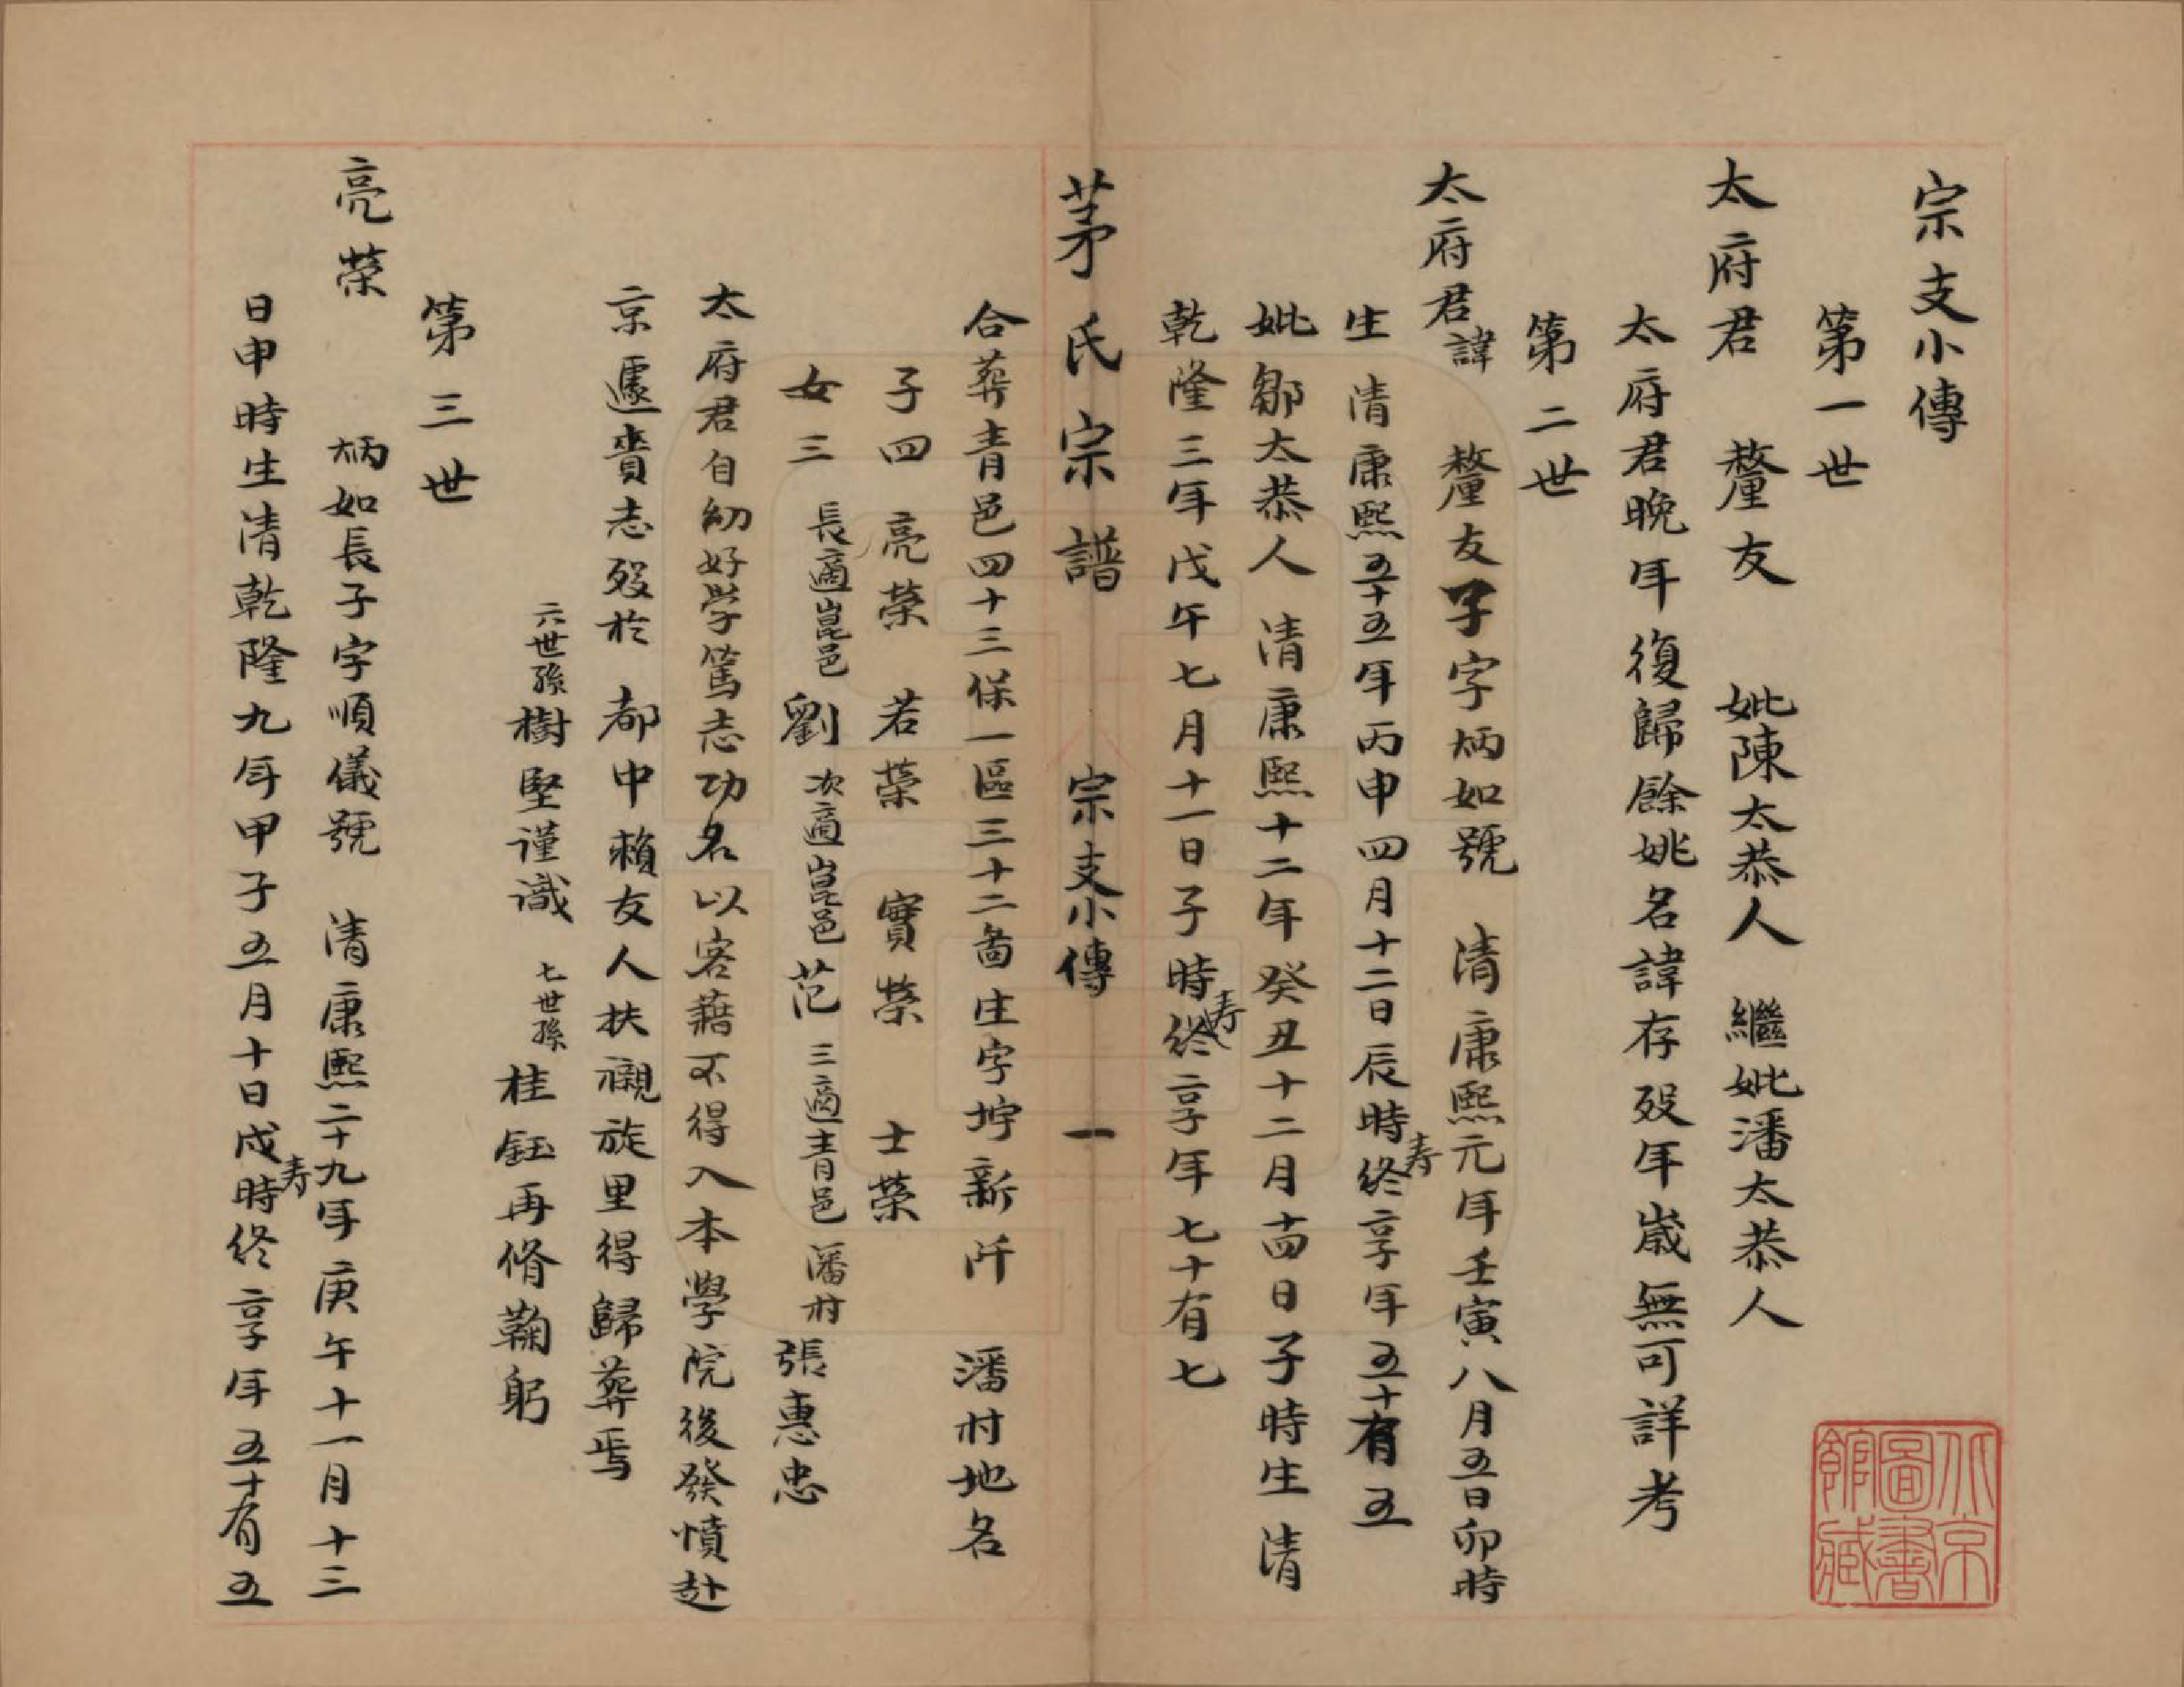 宗支小傳
第一世
太府君 釐友 妣陳太恭人 繼妣潘太恭人
太府君晚年復歸餘姚名諱存歿年歲無可詳考
第二世
太府君諱 釐友子字炳如號 清康熙元年壬寅八月五日卯時
生 清康熙五十五年丙申四月十二日辰時壽終享年五十有五
妣鄒太恭人 清康熙十二年癸丑十二月十四日子時生 清
乾隆三年戊午七月十一日子時壽終享年七十有七
茅氏宗譜 宗支小傳 一
合葬青邑四十三保一區三十二啚庄字圩新阡 潘村地名
子四 亮榮 若榮 實榮 士榮
女三 長適崑邑劉 次適崑邑范 三適青邑潘村張惠忠
太府君自幼好学篤志功名以客藉不得入本學院後發憤赴
京遽賫志歿於 都中賴友人扶櫬旋里得歸葬焉
六世孫樹堅谨識 七世孫桂鈺再脩鞠躬
第三世
亮榮 炳如長子字順儀號 清康熙二十九年庚午十一月十三
日申時生清乾隆九年甲子五月十日戌時壽終享年五十有五
北京
圖書
館藏